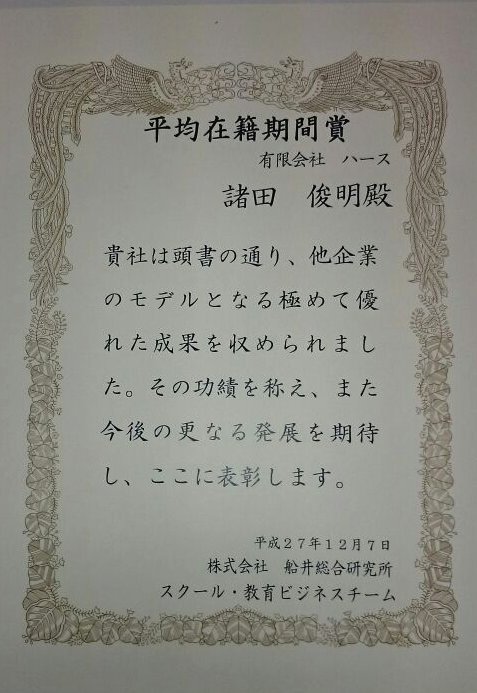 平均在籍期間賞
有限会社　ハース
諸田　俊明殿
貴社は頭書の通り、他企業
のモデルとなる極めて優
れた成果を収められまし
た。その功績を称え、また
今後の更なる発展を期待
し、ここに表彰します。
平成２７年１２月７日
株式会社　船井総合研究所
スクール・教育ビジネスチーム